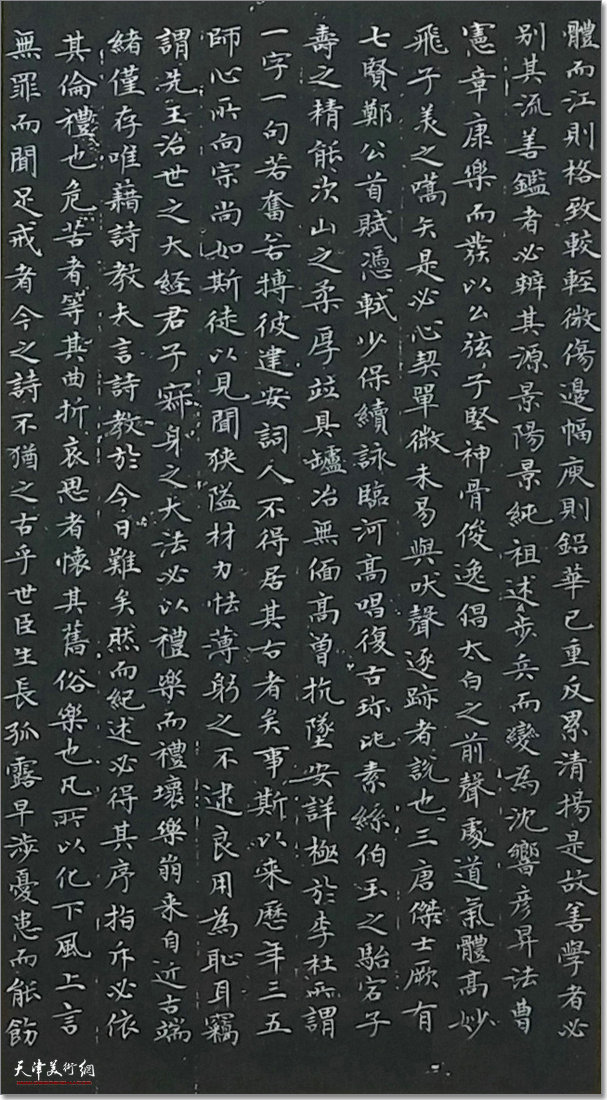 體而江則格致較輕微傷邊幅庾則鉛華已重反累清揚是故善學者必
別其流善鑑者必辨其源景陽景純祖述步兵而變為沈響彥昇法曹
憲章康樂而發以么弦子堅神骨俊逸倡太白之前聲處道氣體高妙
飛子美之嚆矢是必心契單微未易與吠聲逐跡者說也三唐傑士厥有
七賢鄭公首賦憑軾少保續詠臨河高唱復古珎比素絲伯玉之駘宕子
壽之精能次山之柔厚竝具鑪冶無偭高曾抗墜安詳極於李杜所謂
一字一句若奮若搏彼建安詞人不得居其右者矣事斯以來歷年三五
師心所向宗尚如斯徒以見聞狹隘材力怯薄躬之不逮良用為恥耳竊
謂先王治世之大經君子寐身之大法必以禮樂而禮壞樂崩来自近古端
緒僅存唯藉詩教夫言詩教於今日難矣然而紀述必得其序指斥必依
其倫禮也危苦者等其曲折哀思者懷其舊俗樂也凡所以化下風上言
無罪而聞足戒者今之詩不猶之古乎世臣生長孤露早涉憂患而能飭
天津美術網